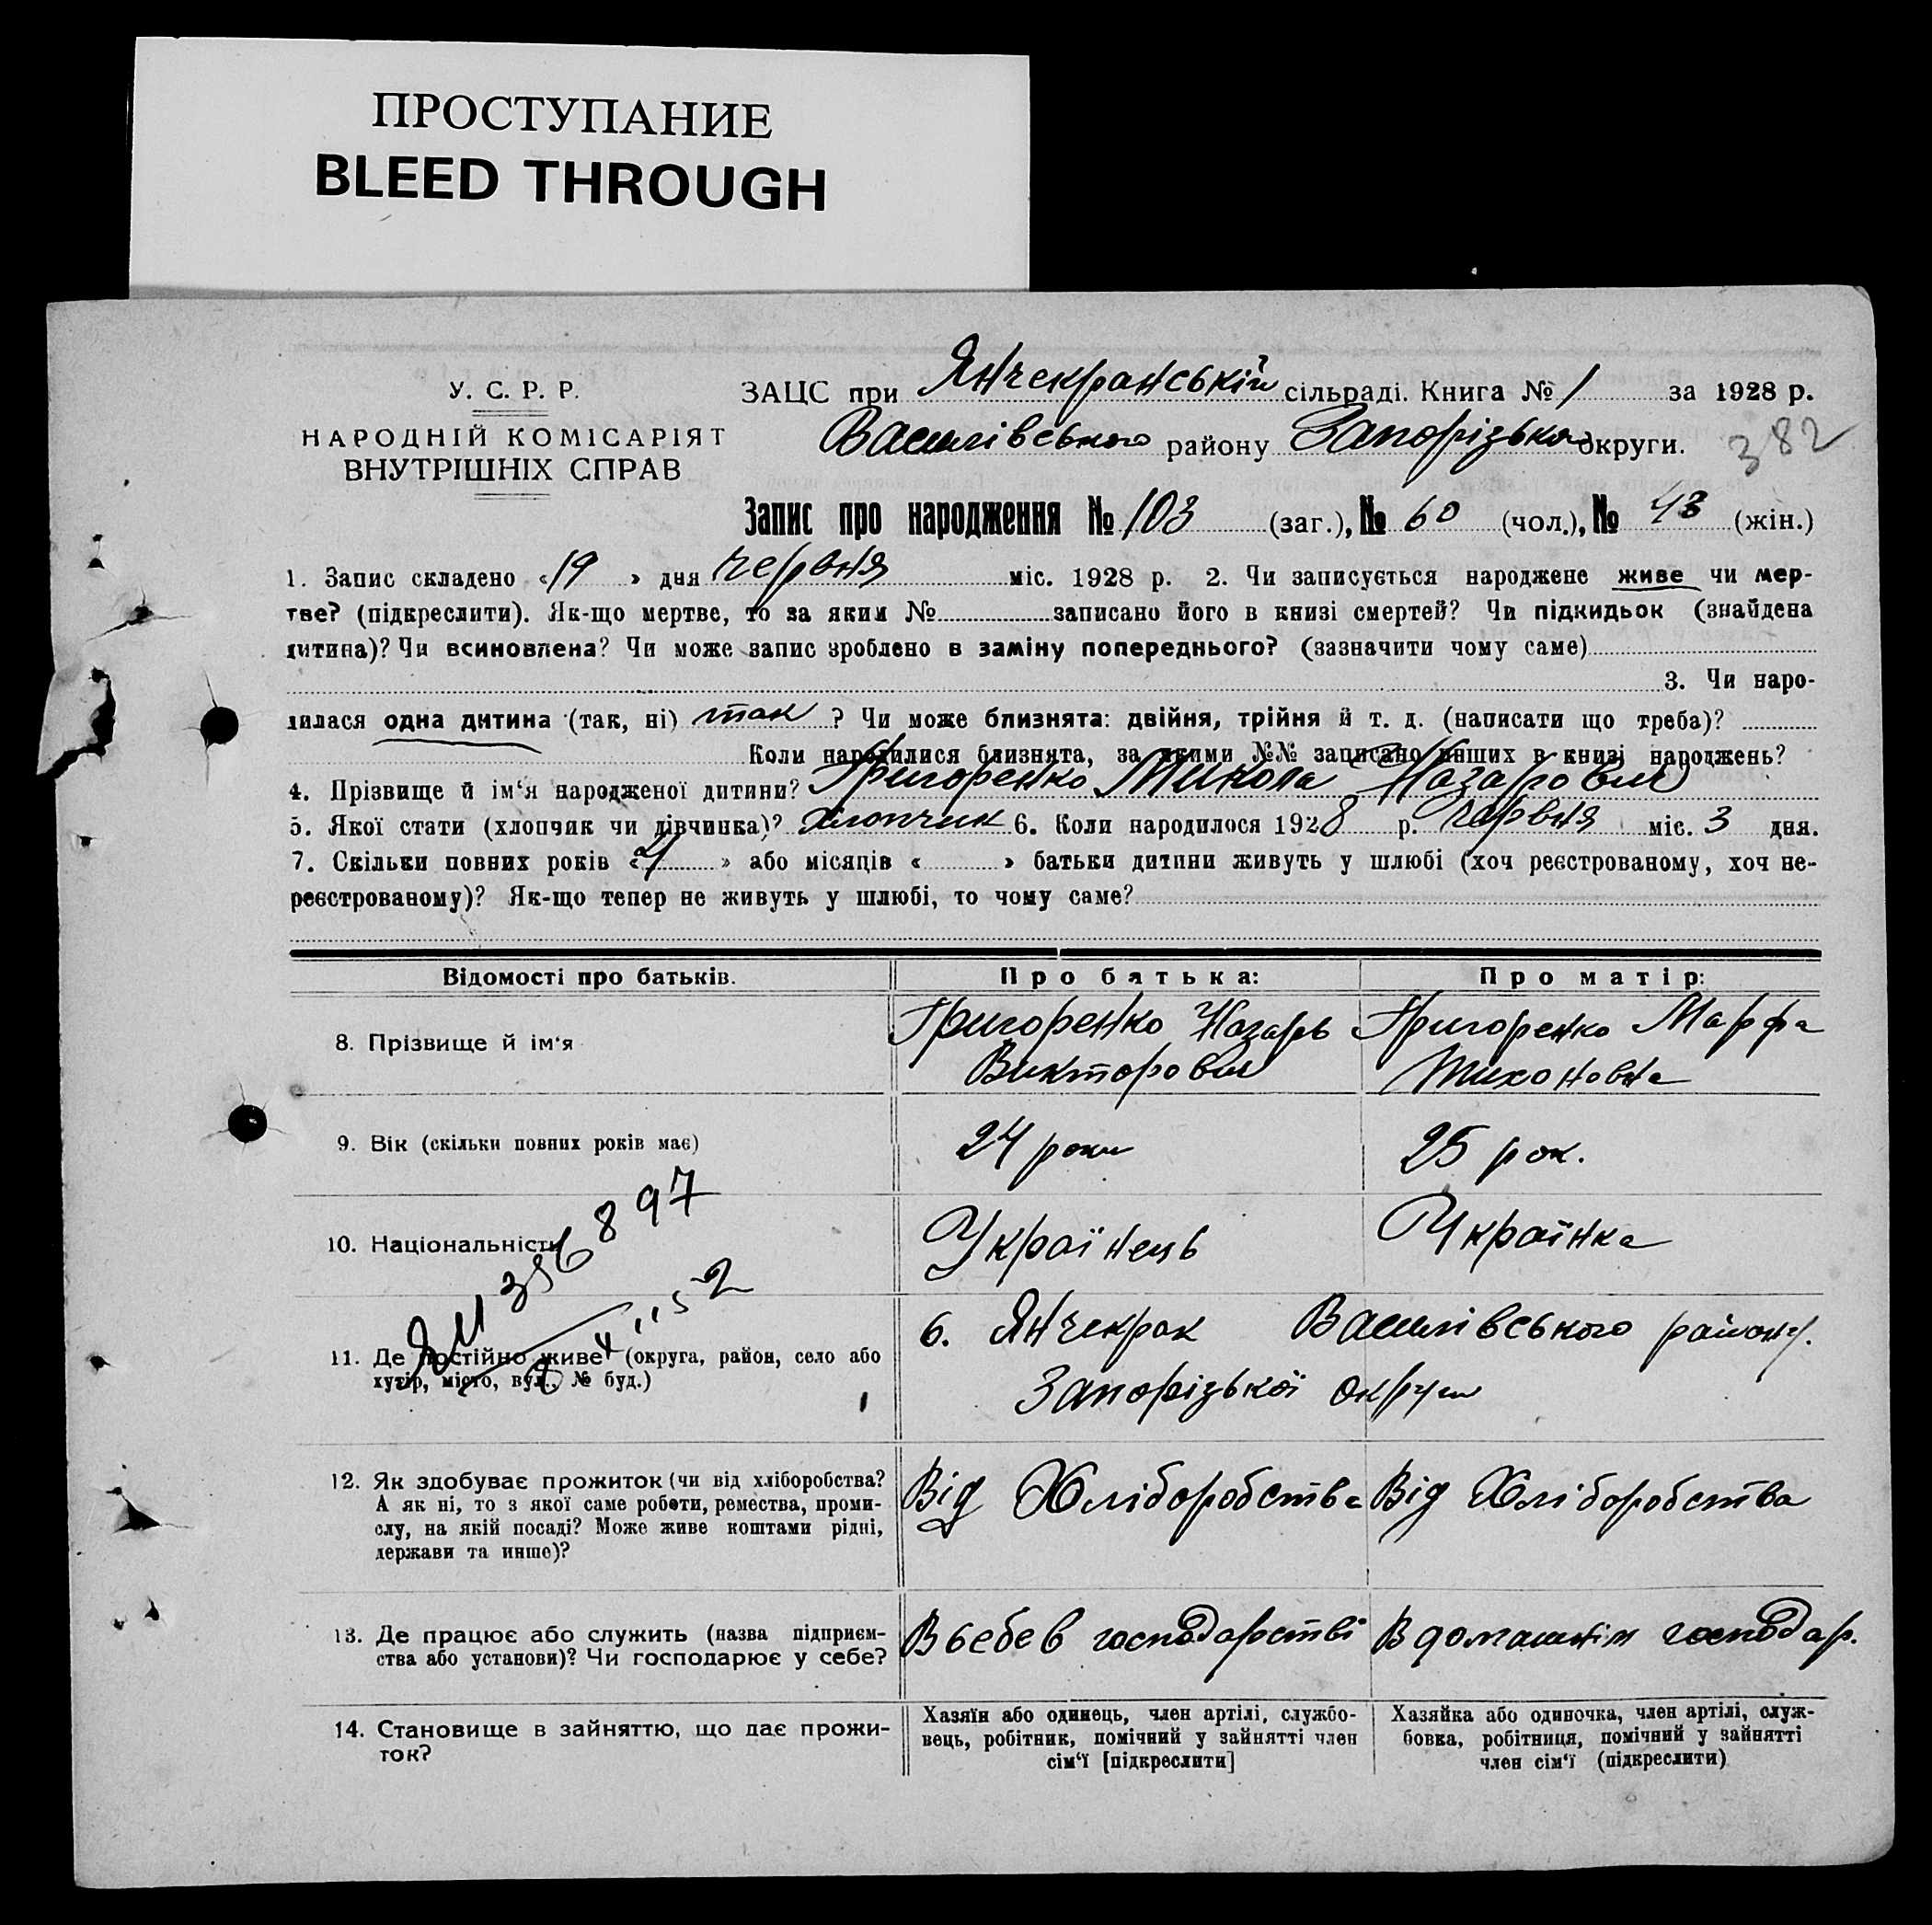 ПРОСТУПАНИЕ
BLEED THROUGH
У. С. Р. Р.
НАРОДНІЙ КОМІСАРІЯТ
ВНУТРІШНІХ СПРАВ
ЗАЦС при Янчекранській сільраді. Книга № 1 за 1928 р.
Василівського району Запорізької округи.
382
Запис про народження № 103 (заг.), № 60 (чол.), № 43 (жін.)
1. Запис складено «19» дня червня міс. 1928 р. 2. Чи записується народжене живе чи мер-
тве? (підкреслити). Як-що мертве, то за яким № записано його в книзі смертей? Чи підкидьок (знайдена
дитина)? Чи всиновлена? Чи може запис зроблено в заміну попереднього? (зазначити чому саме)
3. Чи наро-
дилася одна дитина (так, ні) так ? Чи може близнята: двійня, трійня й т. д. (написати що треба)?
Коли народилися близнята, за якими №№ записано инших в книзі народжень?
4. Прізвище й ім‘я народженої дитини? Григоренко Микола Назарович
5. Якої стати (хлопчик чи дівчинка)? Хлопчик 6. Коли народилося 1928 р. червня міс. 3 дня.
7. Скільки повних років «4» або місяців « » батьки дитини живуть у шлюбі (хоч реєстрованому, хоч не-
реєстрованому)? Як-що тепер не живуть у шлюбі, то чому саме?
Відомості про батьків. Про батька: Про матір:
8. Прізвище й ім‘я
Григоренко Назарь
Викторович
Григоренко Марфа
Тихоновна
9. Вік (скільки повних років має) 24 роки 25 рок.
10. Національність Українець Українка
356897
11. Де постійно живе (округа, район, село або
хутір, місто, вул., № буд.)
с. Янчекрак Василівського району.
Запорізької округи
12. Як здобуває прожиток (чи від хліборобства?
А як ні, то з якої саме роботи, ремества, проми-
слу, на якій посаді? Може живе коштами рідні,
держави та инше)?
Від Хліборобства Від Хліборобства
13. Де працює або служить (назва підприєм-
ства або установи)? Чи господарює у себе?
В себе в господарстві В домашнім господар.
14. Становище в зайняттю, що дає прожи-
ток?
Хазяїн або одинець, член артілі, службо-
вець, робітник, помічний у зайнятті член
сім‘ї [підкреслити]
Хазяйка або одиночка, член артілі, служ-
бовка, робітниця, помічний у зайнятті
член сім‘ї (підкреслити)